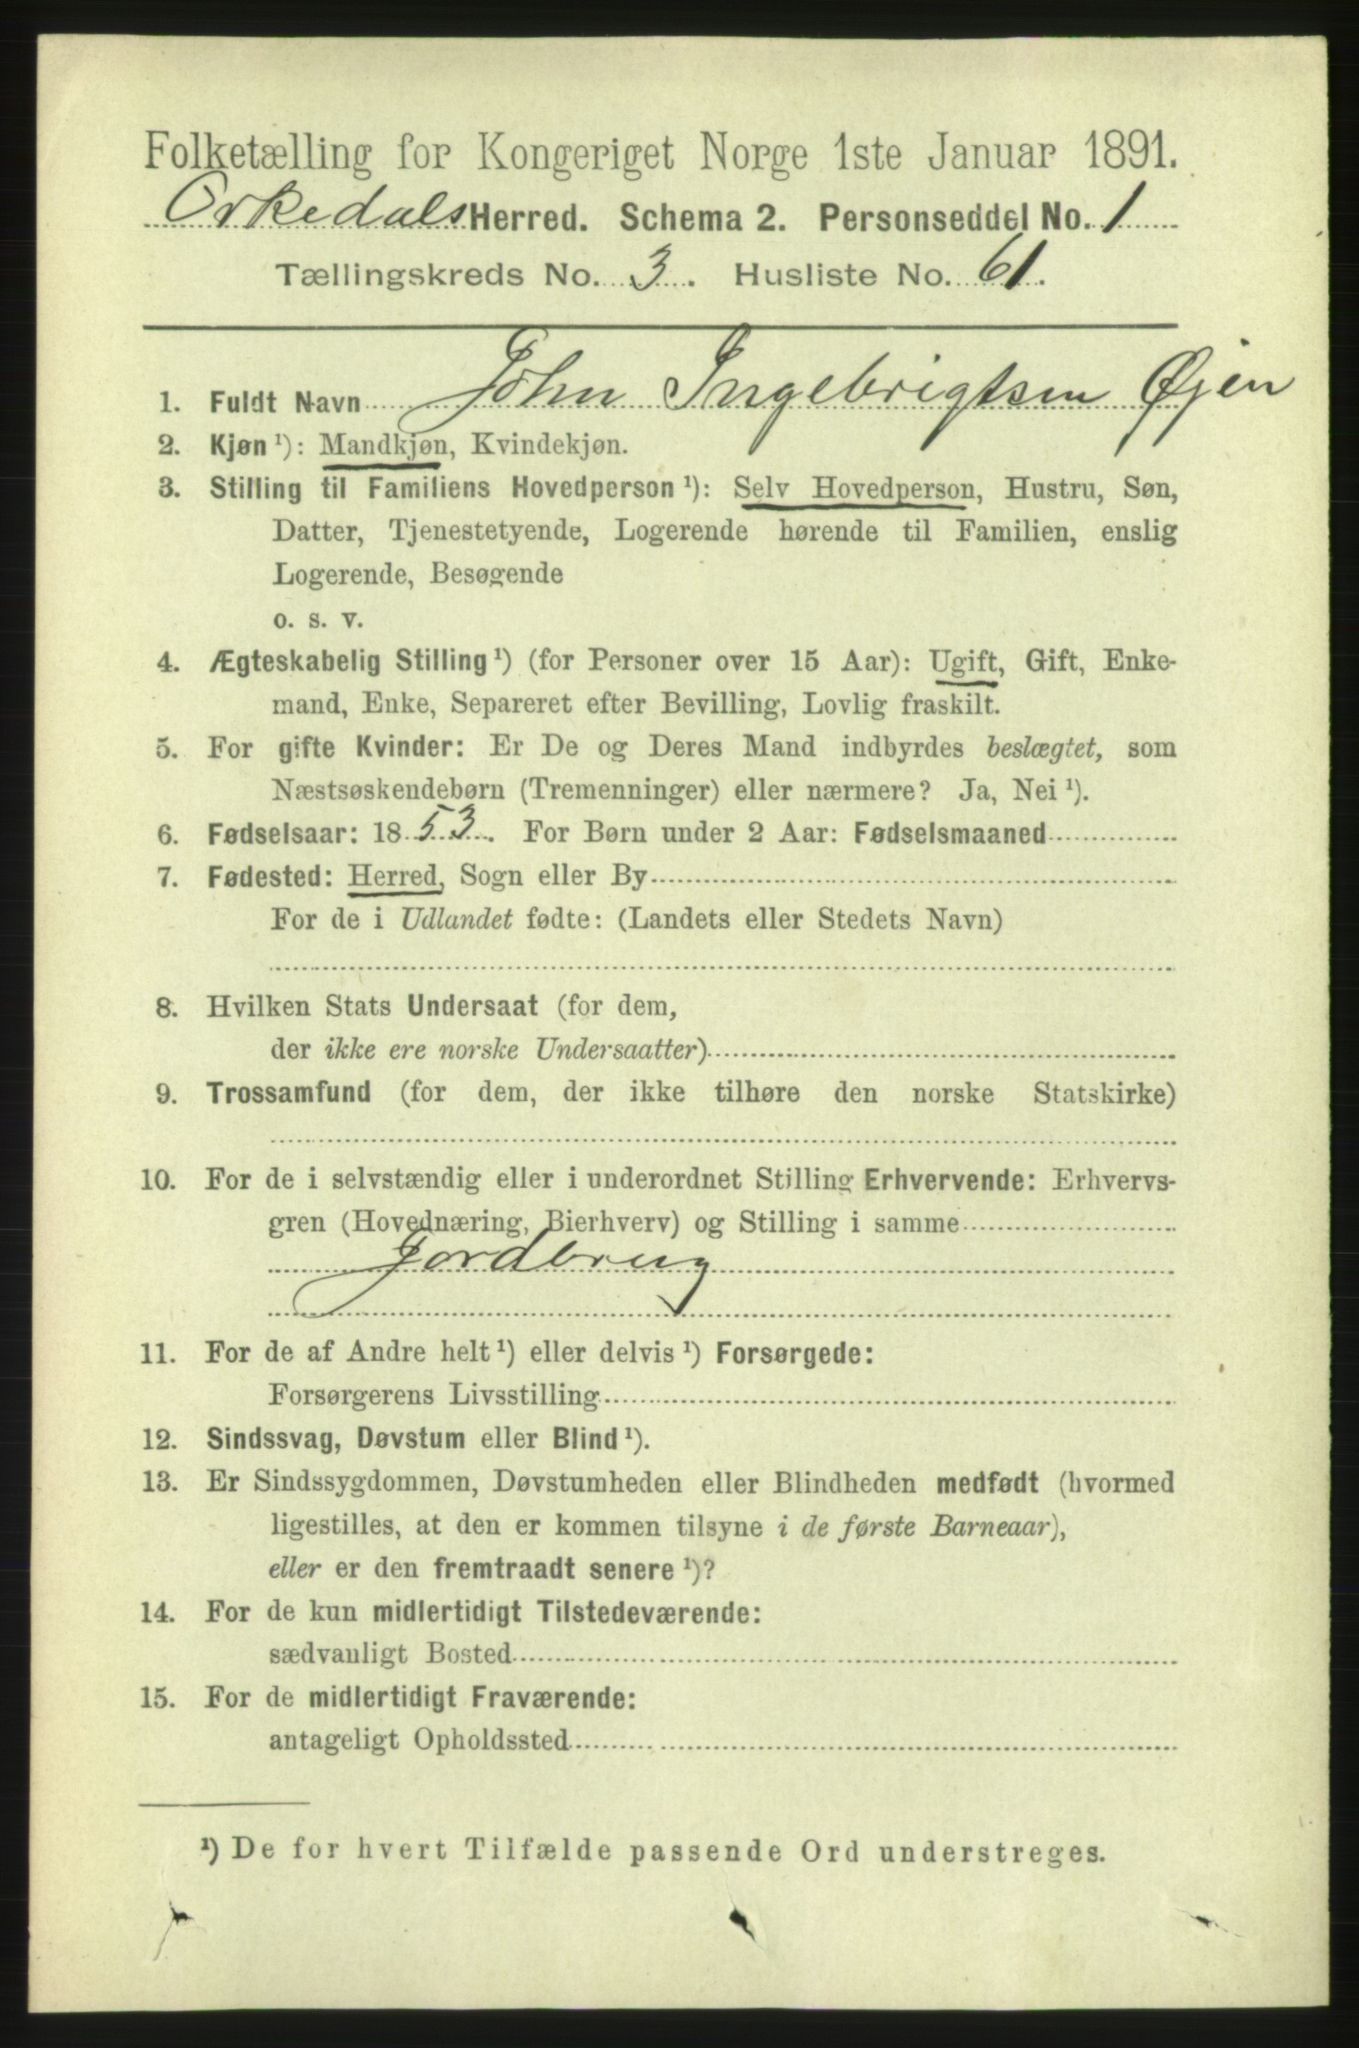 Folketælling for Kongeriget Norge 1ste Januar 1891.
Orkedals Herred. Schema 2. Personseddel No. 1
Tællingskreds No. 3. Husliste No. 61.
1. Fuldt Navn John Ingebrigtsen Øjen
2. Kjøn ¹): Mandkjøn, Kvindekjøn.
3. Stilling til Familiens Hovedperson ¹): Selv Hovedperson, Hustru, Søn,
Datter, Tjenestetyende, Logerende hørende til Familien, enslig
Logerende, Besøgende
o. s. v.
4. Ægteskabelig Stilling ¹) (for Personer over 15 Aar): Ugift, Gift, Enke-
mand, Enke, Separeret efter Bevilling, Lovlig fraskilt.
5. For gifte Kvinder: Er De og Deres Mand indbyrdes beslægtet, som
Næstsøskendebørn (Tremenninger) eller nærmere? Ja, Nei ¹).
6. Fødselsaar: 1853. For Børn under 2 Aar: Fødselsmaaned
7. Fødested: Herred, Sogn eller By
For de i Udlandet fødte: (Landets eller Stedets Navn)
8. Hvilken Stats Undersaat (for dem,
der ikke ere norske Undersaatter)
9. Trossamfund (for dem, der ikke tilhøre den norske Statskirke)
10. For de i selvstændig eller i underordnet Stilling Erhvervende: Erhvervs-
gren (Hovednæring, Bierhverv) og Stilling i samme
Jordbrug
11. For de af Andre helt ¹) eller delvis ¹) Forsørgede:
Forsørgerens Livsstilling
12. Sindssvag, Døvstum eller Blind ¹).
13. Er Sindssygdommen, Døvstumheden eller Blindheden medfødt (hvormed
ligestilles, at den er kommen tilsyne i de første Barneaar),
eller er den fremtraadt senere ¹)?
14. For de kun midlertidigt Tilstedeværende:
sædvanligt Bosted
15. For de midlertidigt Fraværende:
antageligt Opholdssted
¹) De for hvert Tilfælde passende Ord understreges.